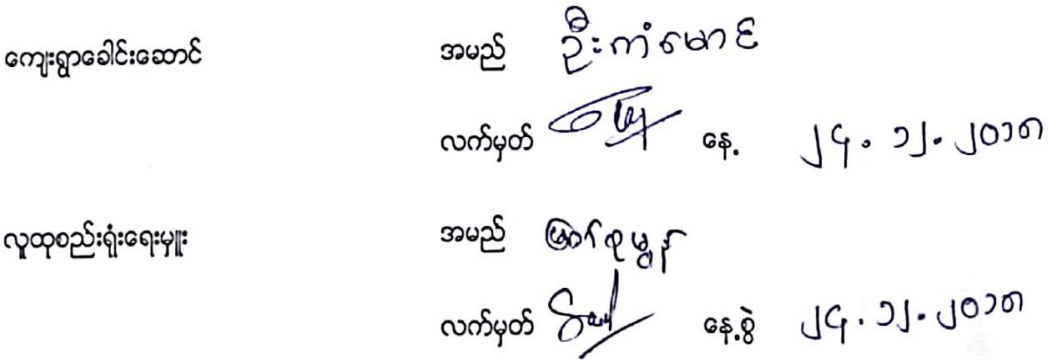 ကျေးရွာခေါင်းဆောင် အမည် ဦးကံမောင်
လက်မှတ် နေ့ ၂၄.၁၂.၂၀၁၈
လူထုစည်းရုံးရေးမှူး အမည်
လက်မှတ် နေ့စွဲ ၂၄.၁၂.၂၀၁၈